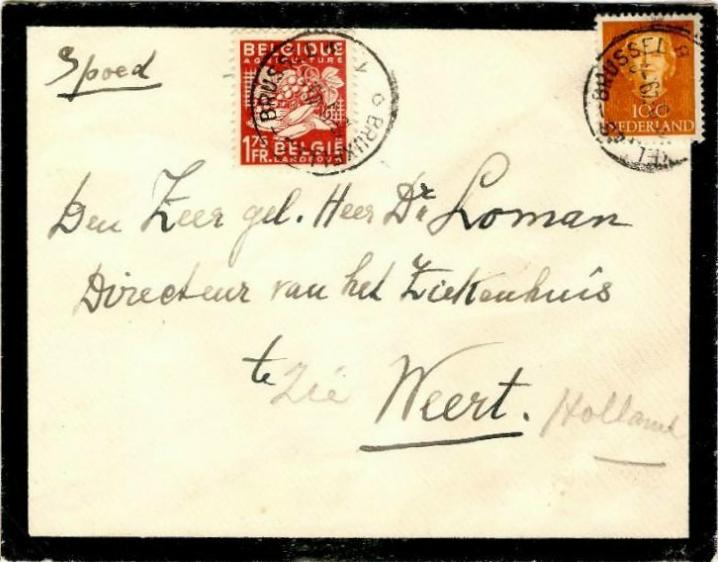 Spoed
BELGIQUE
AGRICULTURE
1.75 FR. BELGIE
LANDBOUW
BRUSSEL
BRUXEL
BRUSSEL
10c
NEDERLAND
Den Zeer gel. Heer Dr Loman
Directeur van het Ziekenhuis
te Zie Weert. Holland